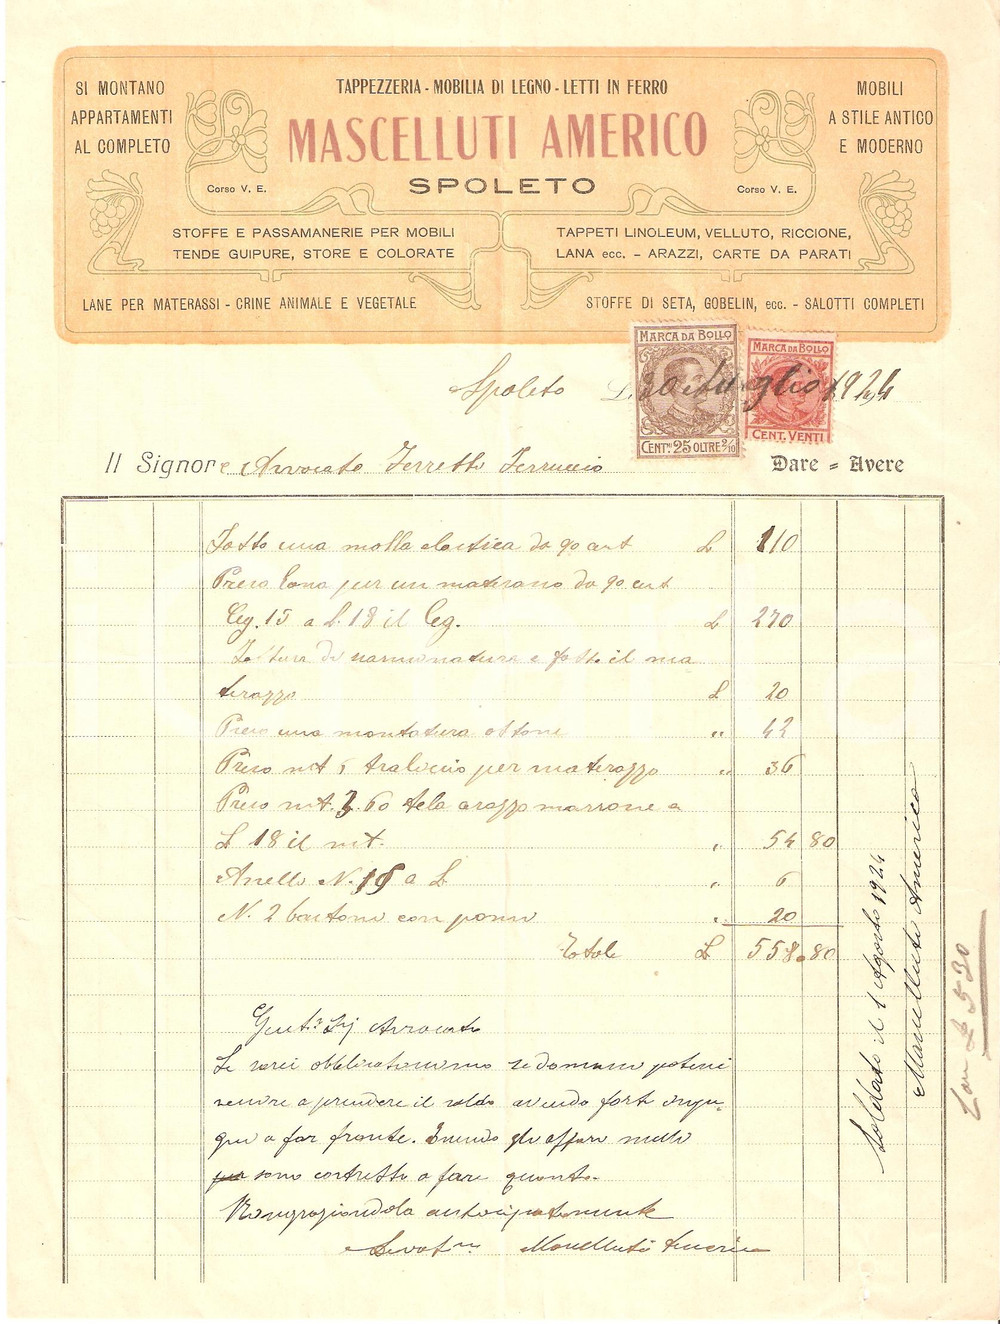 SI MONTANO
APPARTAMENTI
AL COMPLETO
TAPPEZZERIA - MOBILIA DI LEGNO - LETTI IN FERRO
MASCELLUTI AMERICO
SPOLETO
MOBILI
A STILE ANTICO
E MODERNO
Corso V. E.
Corso V. E.
STOFFE E PASSAMANERIE PER MOBILI
TENDE GUIPURE, STORE E COLORATE
TAPPETI LINOLEUM, VELLUTO, RICCIONE,
LANA ecc. - ARAZZI, CARTE DA PARATI
LANE PER MATERASSI - CRINE ANIMALE E VEGETALE
STOFFE DI SETA, GOBELIN, ecc. - SALOTTI COMPLETI
MARCA DA BOLLO
CENT.MI 25 OLTRE 2/10
MARCA DA BOLLO
CENT. VENTI
Spoleto Lì 30 Luglio 1924
Il Signore Avvocato Ferretti Ferruccio
Dare = Avere
Fatto una molla elastica da 90 cent £ 110
Preso Lana per un materasso da 90 cent
Cg. 15 a L. 18 il Cg. £ 270
e fatto il ma
terazzo £ 20
Preso una montatura ottone " 42
Preso mt 5 traliccio per materazzo " 36
Preso mt. 3.60 tela arazzo marrone a
£ 18 il mt. " 54 80
Anello N. 15 a £ " 6
N. 2 bastoni con pomi " 20
Totale £ 558.80
Gent. Sig Avvocato
Le sarei obbligatissimo se domani potessi
venire a prendere il saldo avendo forti
a far fronte. Essendo gli affari nulli
sono costretto a fare questo.
Ringraziandola anticipatamente
Mascelluti Americo
Saldato il 1 Agosto 1924
Mascelluti Americo
£ 530